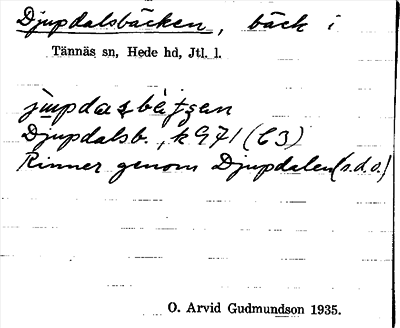 Djupdalsbäcken, bäck i
Tännäs sn, Hede hd, Jtl. l.
Djupdalsb., k 971 (C3)
Rinner genom Djupdalen (s.d.o.)
O. Arvid Gudmundson 1935.